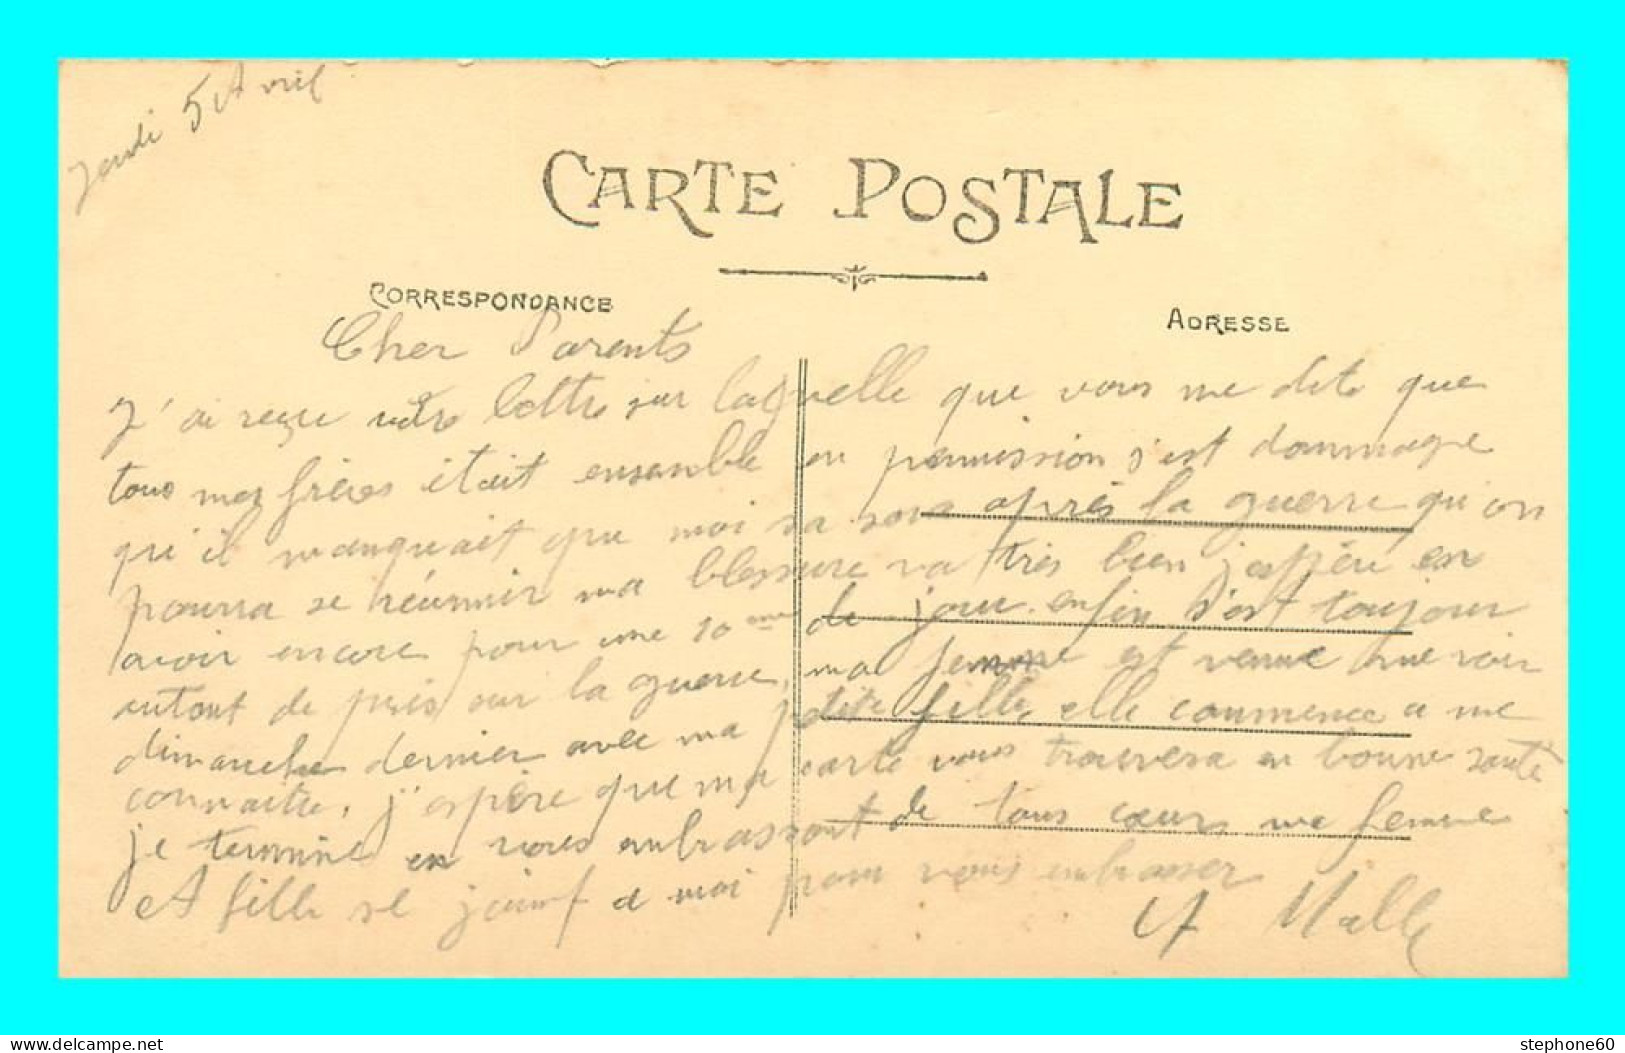 Jeudi 5 Avril
CARTE POSTALE
CORRESPONDANCE
ADRESSE
Cher Parents
J'ai reçu votre lettre sur laquelle que vous me dite que
tous mes frères était ensemble en permission s'est dommage
qu'il manquait que moi sa sera après la guerre qu'on
pourra se réunnir ma blessure va très bien j'espère en
avoir encore pour une 10 aine de jour enfin s'est toujour
autant de pris sur la guerre, ma femme est venue me voir
dimanche dernier avec ma petite fille elle commence a me
connaitre, j'espère que ma carte vous trouvera en bonne santé
je termine en vous embrassant de tous cœur ma femme
et fille se joint a moi pour vous embrasser
A Malle
stephone60
delcampe.net